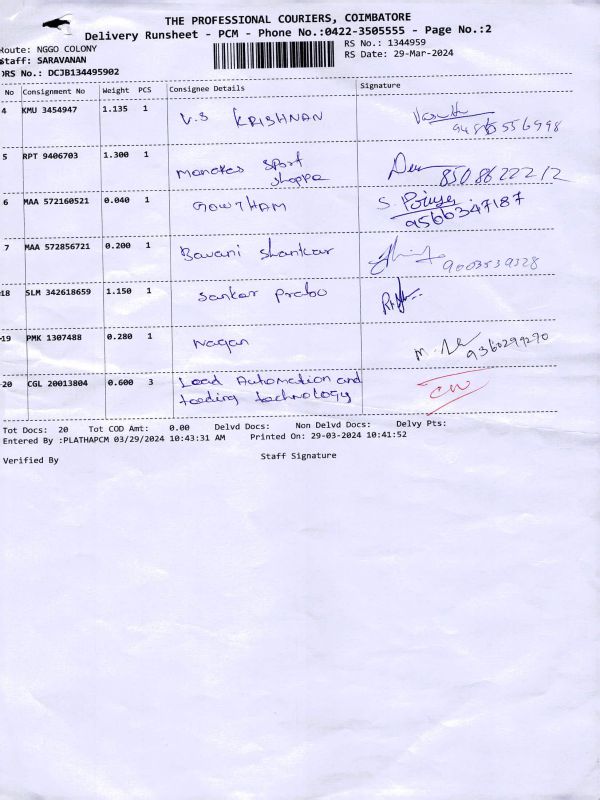 THE PROFESSIONAL COURIERS, COIMBATORE
Delivery Runsheet - PCM - Phone No.:0422-3505555 - Page No.:2
Route: NGGO COLONY
Staff: SARAVANAN
DRS No.: DCJB134495902
RS No.: 1344959
RS Date: 29-Mar-2024
No Consignment No Weight PCS Consignee Details Signature
4 KMU 3454947 1.135 1 V.S KRISHNAN
5 RPT 9406703 1.300 1 Monckes Sport Shoppe 8508622212
6 MAA 572160521 0.040 1 GOWTHAM S. 9566347187
7 MAA 572856721 0.200 1 Bavani Shankar 9003539328
18 SLM 342618659 1.150 1 Sankar Prabo
19 PMK 1307488 0.280 1 Nagan 9360299290
20 CGL 20013804 0.600 3 Lead Automation and
toading technology
Tot Docs: 20 Tot COD Amt: 0.00 Delvd Docs: Non Delvd Docs: Delvy Pts:
Entered By :PLATHAPCM 03/29/2024 10:43:31 AM Printed On: 29-03-2024 10:41:52
Verified By Staff Signature